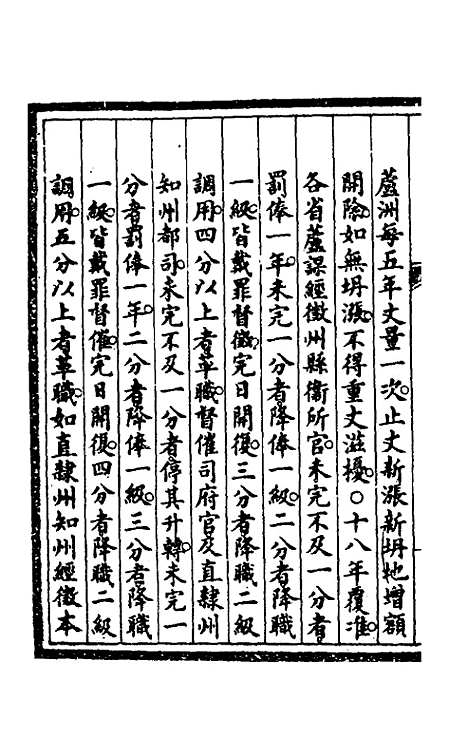 蘆洲每五年丈量一次止丈新漲新坍地增額
開除如無坍漲不得重丈滋擾〇十八年覆准
各省蘆課經徵州縣衛所官未完不及一分者
罰俸一年未完一分者降俸一級二分者降職
一級皆戴罪督徵完日開復三分者降職二級
調用四分以上者革職督催司府官及直隸州
知州都司未完不及一分者停其升轉未完一
分者罰俸一年二分者降俸一級三分者降職
一級皆戴罪督催完日開復四分者降職二級
調用五分以上者革職如直隸州知州經徵本